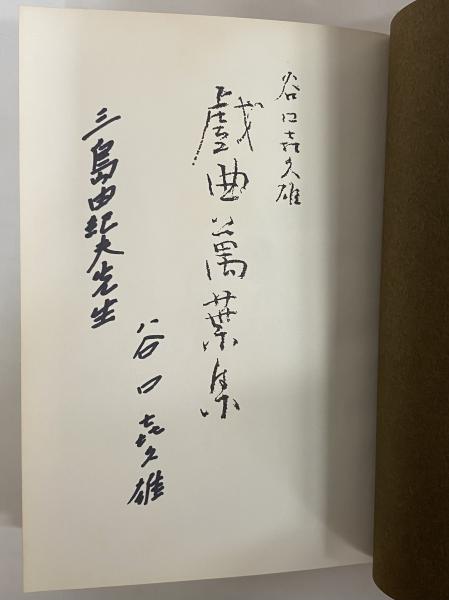 谷口㐂久雄
戯曲萬葉集
三島由紀夫先生
谷口㐂久雄